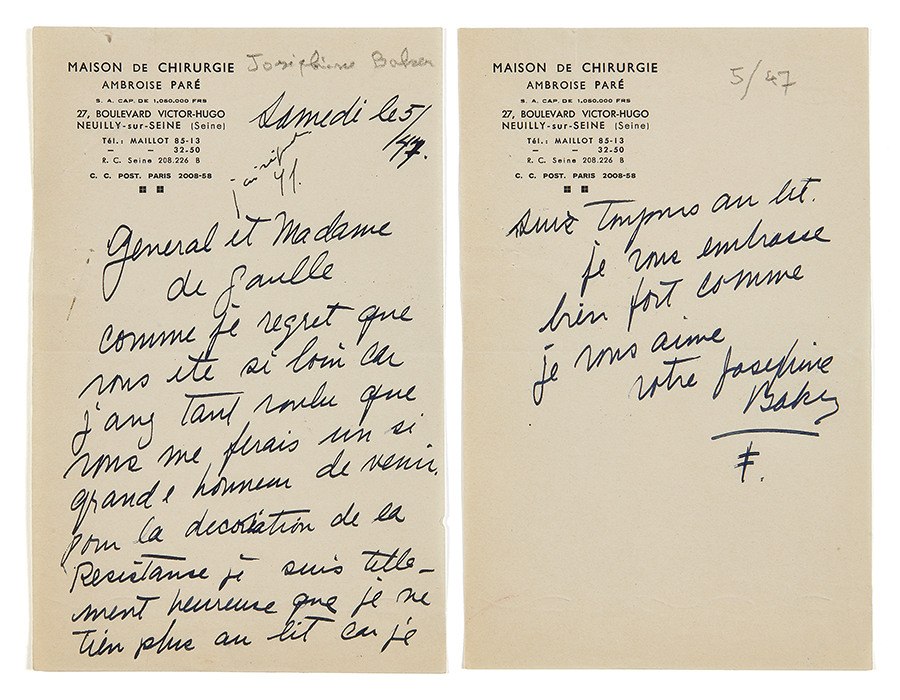 MAISON DE CHIRURGIE
AMBROISE PARÉ
S. A. CAP. DE 1,050.000 FRS
27, BOULEVARD VICTOR-HUGO
NEUILLY-sur-SEINE (Seine)
Tél.: MAILLOT 85-13
– – 32-50
R. C. Seine 208.226 B
C. C. POST. PARIS 2008-58
Josephine Baker
Samedi le 5/
/47.
General et Madame
de Gaulle
comme je regret que
vous ete si loin car
j'ang tant voulu que
vous me ferais un si
grande honneur de venir
pour la decoration de la
Resistanse je suis telle-
ment heureuse que je ne
tien plus au lit car je
MAISON DE CHIRURGIE
AMBROISE PARÉ
S. A. CAP. DE 1,050.000 FRS
27, BOULEVARD VICTOR-HUGO
NEUILLY-sur-SEINE (Seine)
Tél.: MAILLOT 85-13
– – 32-50
R. C. Seine 208.226 B
C. C. POST. PARIS 2008-58
5/47
suis toujours au lit.
je vous embrasse
bien fort comme
je vous aime
votre Josephine
Baker